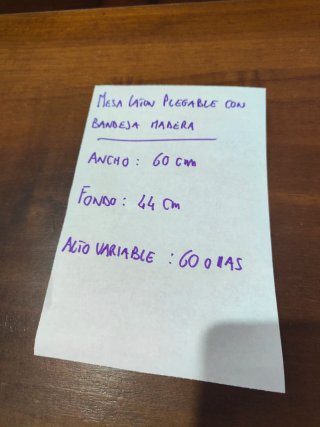 MESA LATON PLEGABLE CON
BANDEJA MADERA
ANCHO : 60 cm
FONDO : 44 cm
ALTO VARIABLE : 60 O MAS